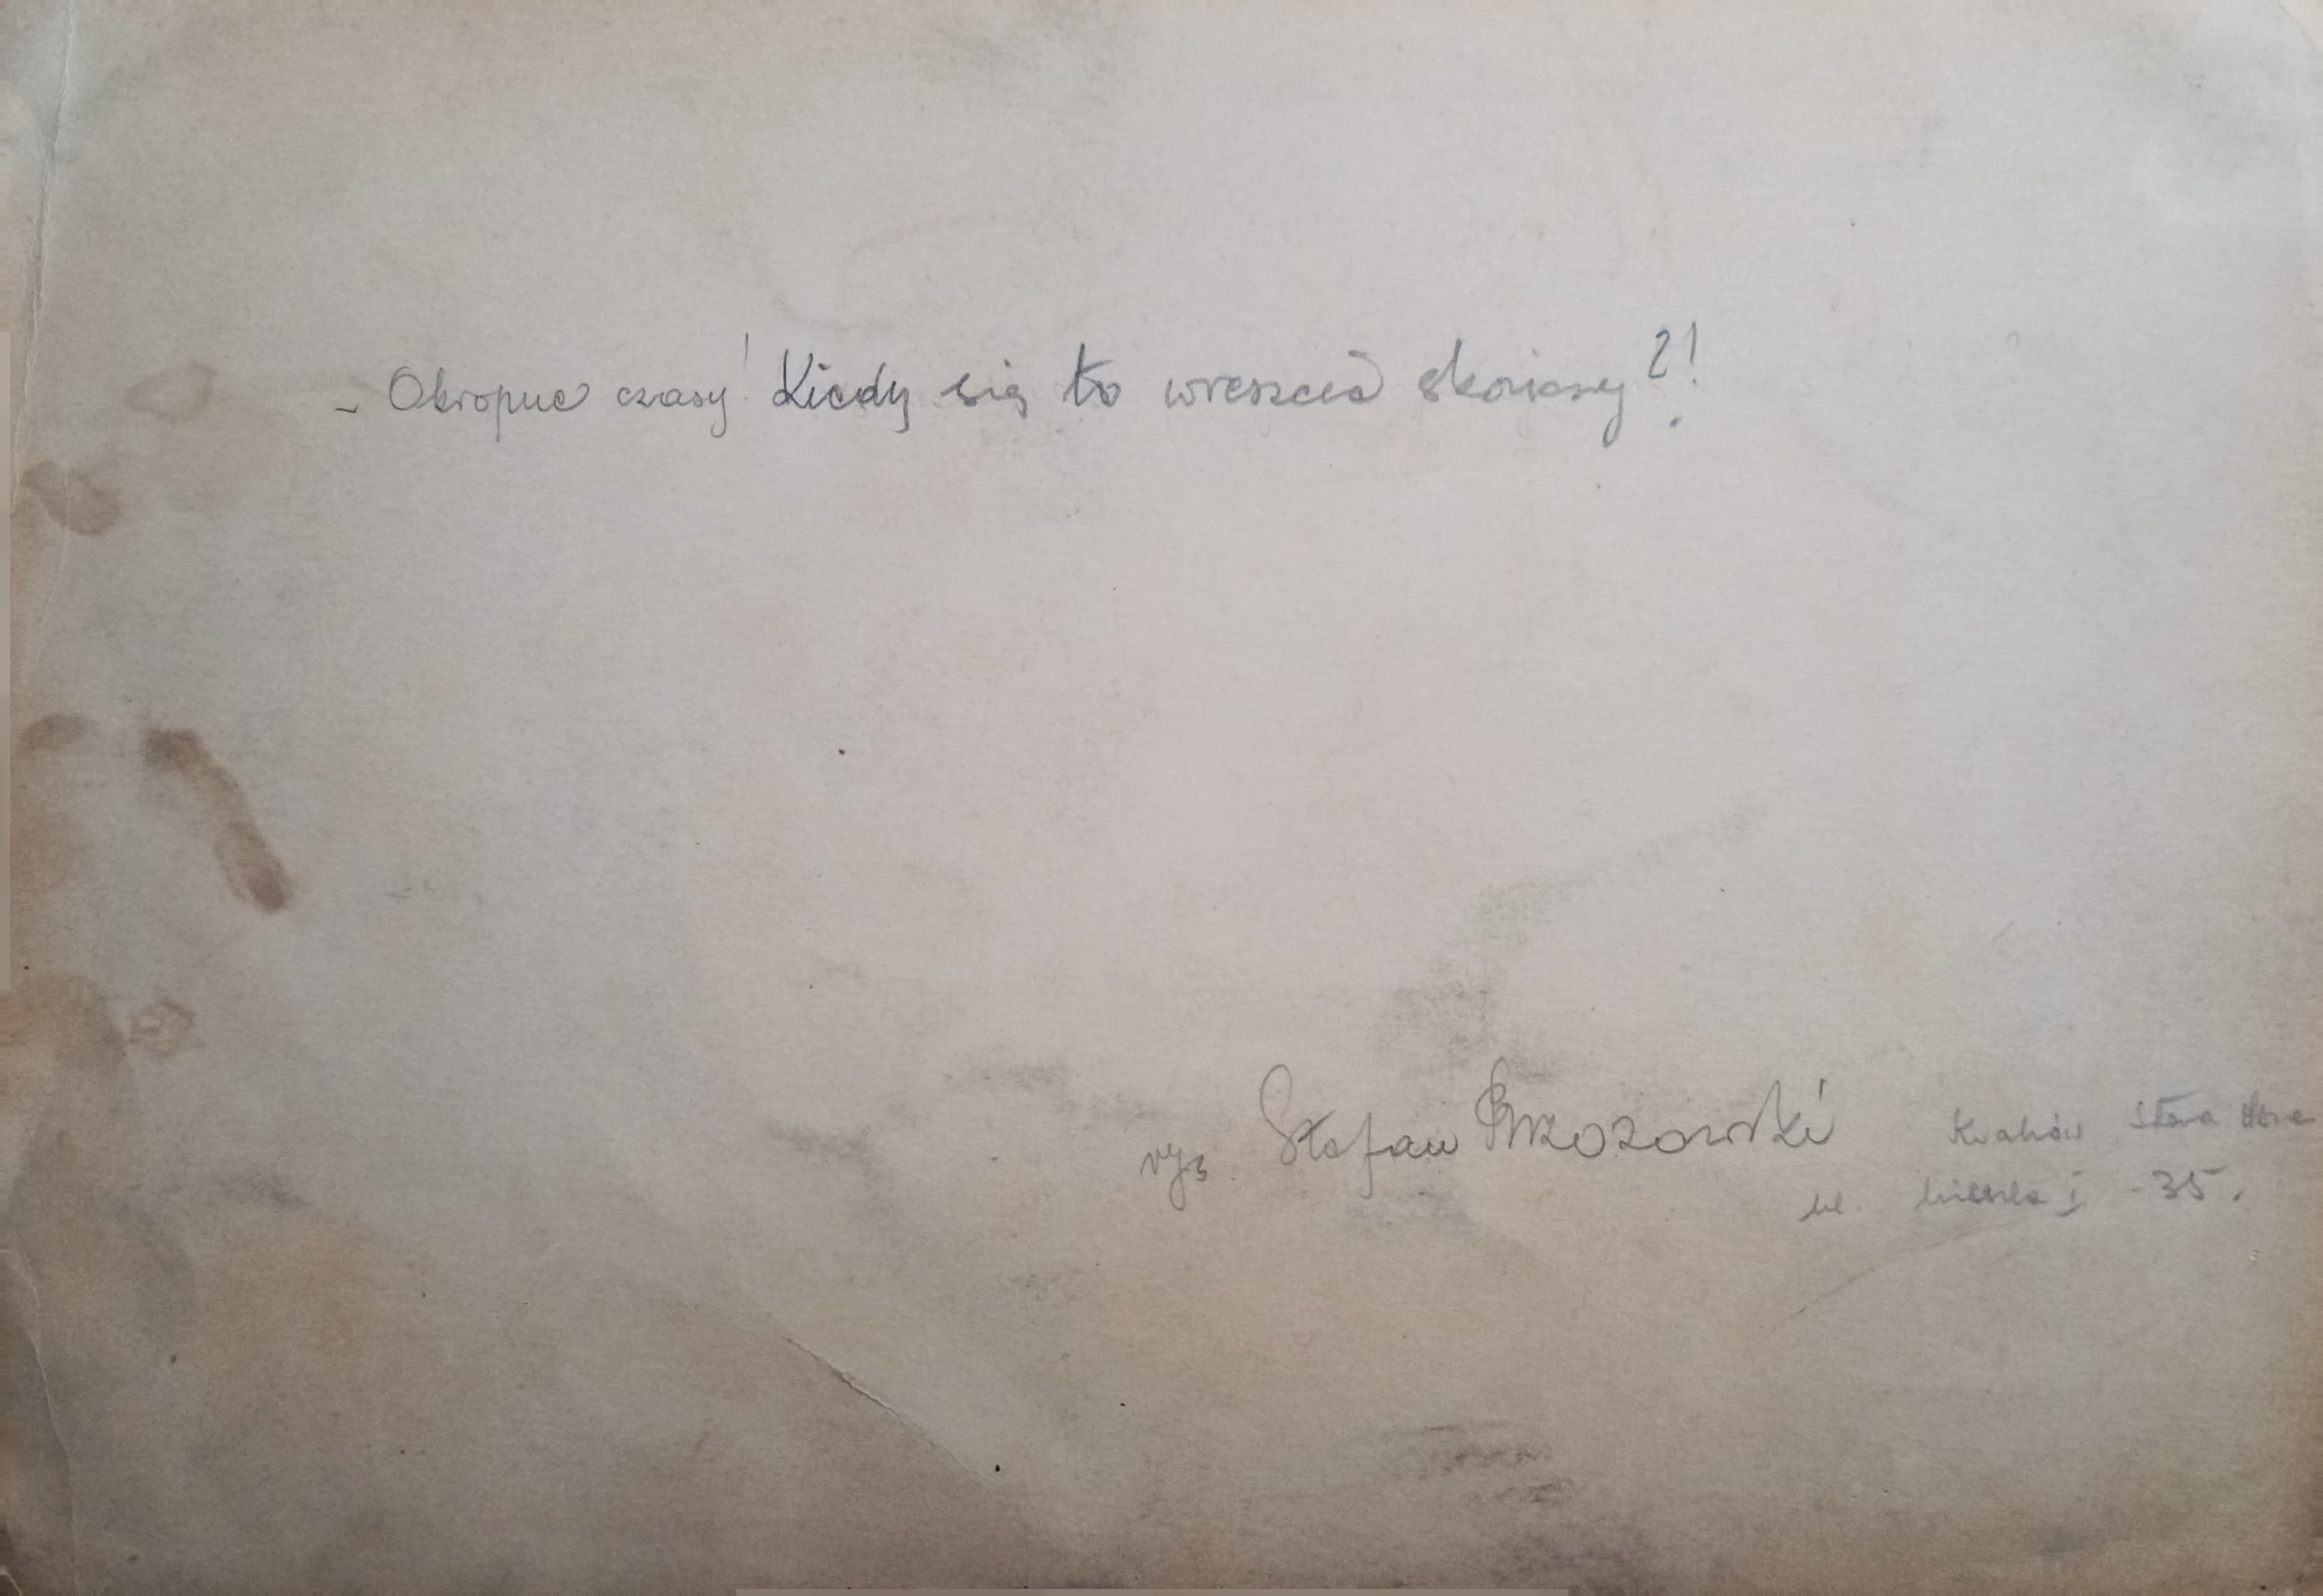 - Okropne czasy! Kiedy się to wreszcie skończy?!
rys. Stefan Brzozowski Kraków
ul. I - 35.